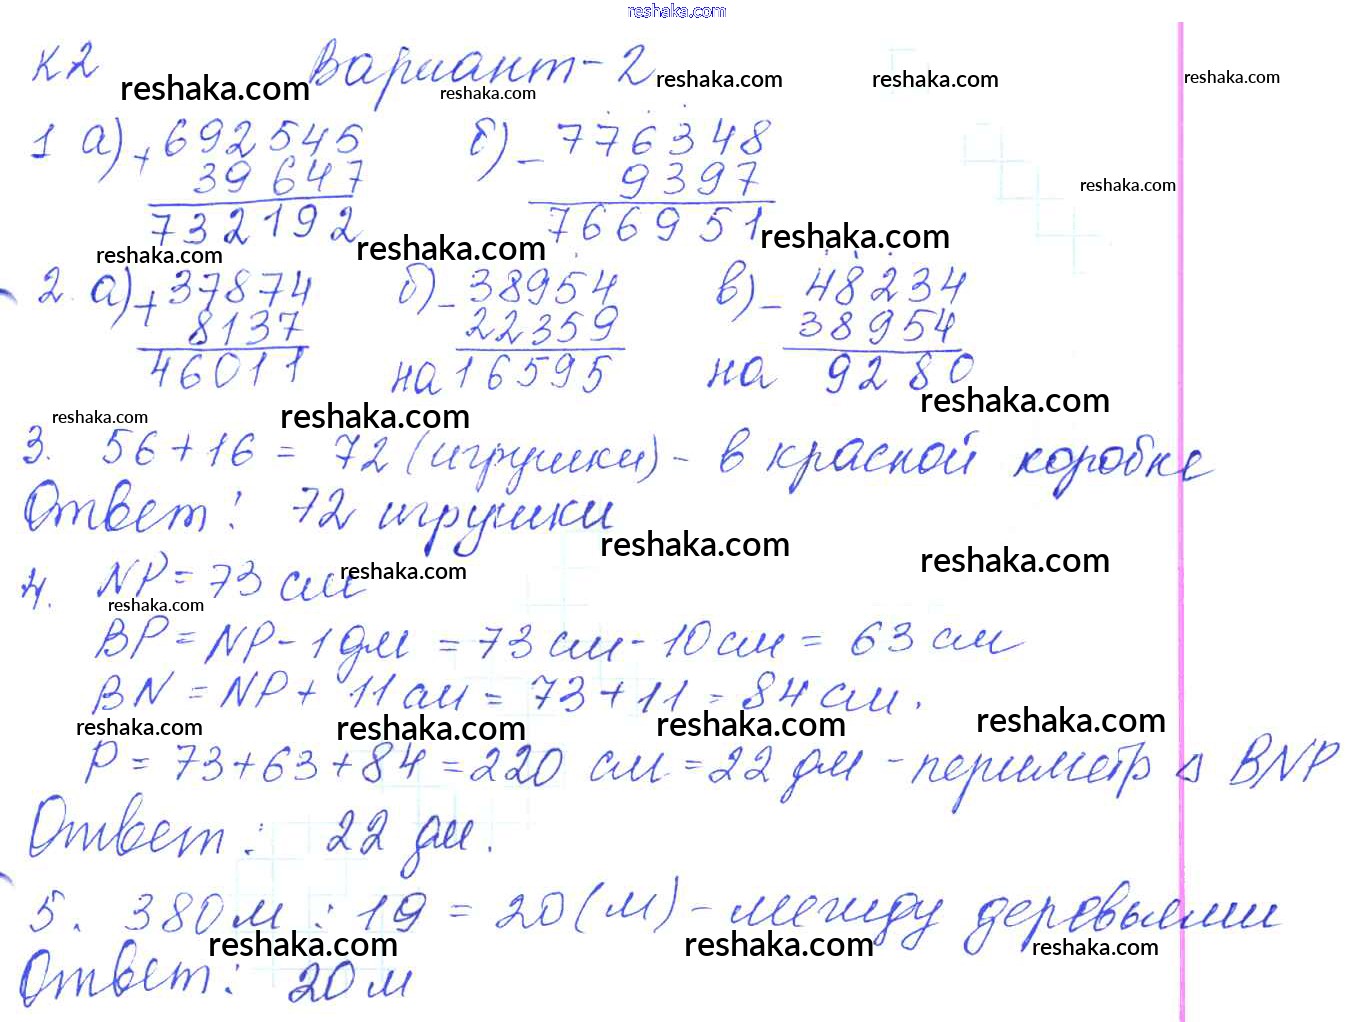 reshaka.com
К2 Вариант-2
reshaka.com reshaka.com reshaka.com reshaka.com reshaka.com
1 а) + 692545 б) - 776348
39647 9397
732192 766951
reshaka.com
reshaka.com reshaka.com reshaka.com
2. а) + 37874 б) - 38954 в) - 48234
8137 22359 38954
46011 на 16595 на 9280
reshaka.com reshaka.com reshaka.com
3. 56 + 16 = 72 (игрушки) - в красной коробке
Ответ: 72 игрушки
reshaka.com reshaka.com
4. NP = 73 см
reshaka.com
reshaka.com
BP = NP - 1 дм = 73 см - 10 см = 63 см
BN = NP + 11 см = 73 + 11 = 84 см.
reshaka.com reshaka.com reshaka.com reshaka.com
P = 73 + 63 + 84 = 220 см = 22 дм - периметр Δ BNP
Ответ: 22 дм.
5. 380 м : 19 = 20 (м) - между деревьями
reshaka.com reshaka.com reshaka.com
Ответ: 20 м